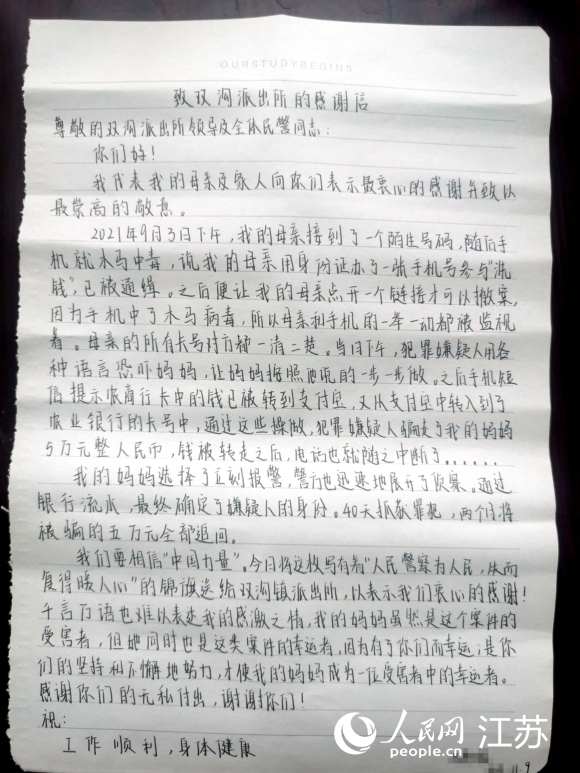 OURSTUDYBEGINS
致双沟派出所的感谢信
尊敬的双沟派出所领导及全体民警同志：
你们好！
我代表我的母亲及家人向你们表示最衷心的感谢并致以
最崇高的敬意。
2021年9月3日下午，我的母亲接到了一个陌生号码，随后手
机就木马中毒，说我的母亲用身份证办了一张手机号参与“洗
钱”，已被通缉。之后便让我的母亲点开一个链接才可以撤案，
因为手机中了木马病毒，所以母亲和手机的一举一动都被监视
着。母亲的所有卡号对方都一清二楚。当日下午，犯罪嫌疑人用各
种语言恐吓妈妈，让妈妈按照他说的一步一步做。之后手机短
信提示农商行卡中的钱已被转到支付宝，又从支付宝中转入到了
农业银行的卡号中，通过这些操做，犯罪嫌疑人骗走了我的妈妈
5万元整人民币，钱被转走之后，电话也就随之中断了......
我的妈妈选择了立刻报警，警方也迅速地展开了侦案。通过
银行流水，最终确定了嫌疑人的身份。40天抓获罪犯，两个月将
被骗的五万元全部追回。
我们要相信“中国力量”。今日将这枚写有着“人民警察为人民，失而
复得暖人心”的锦旗送给双沟镇派出所，以表示我们衷心的感谢！
千言万语也难以表达我的感激之情，我的妈妈虽然是这个案件的
受害者，但她同时也是这类案件的幸运者，因为有了你们而幸运；是你
们的坚持和不懈地努力，才使我的妈妈成为一位受害者中的幸运者。
感谢你们的无私付出，谢谢你们！
祝：
工作顺利，身体健康
11.9
人民网 江苏
people.cn